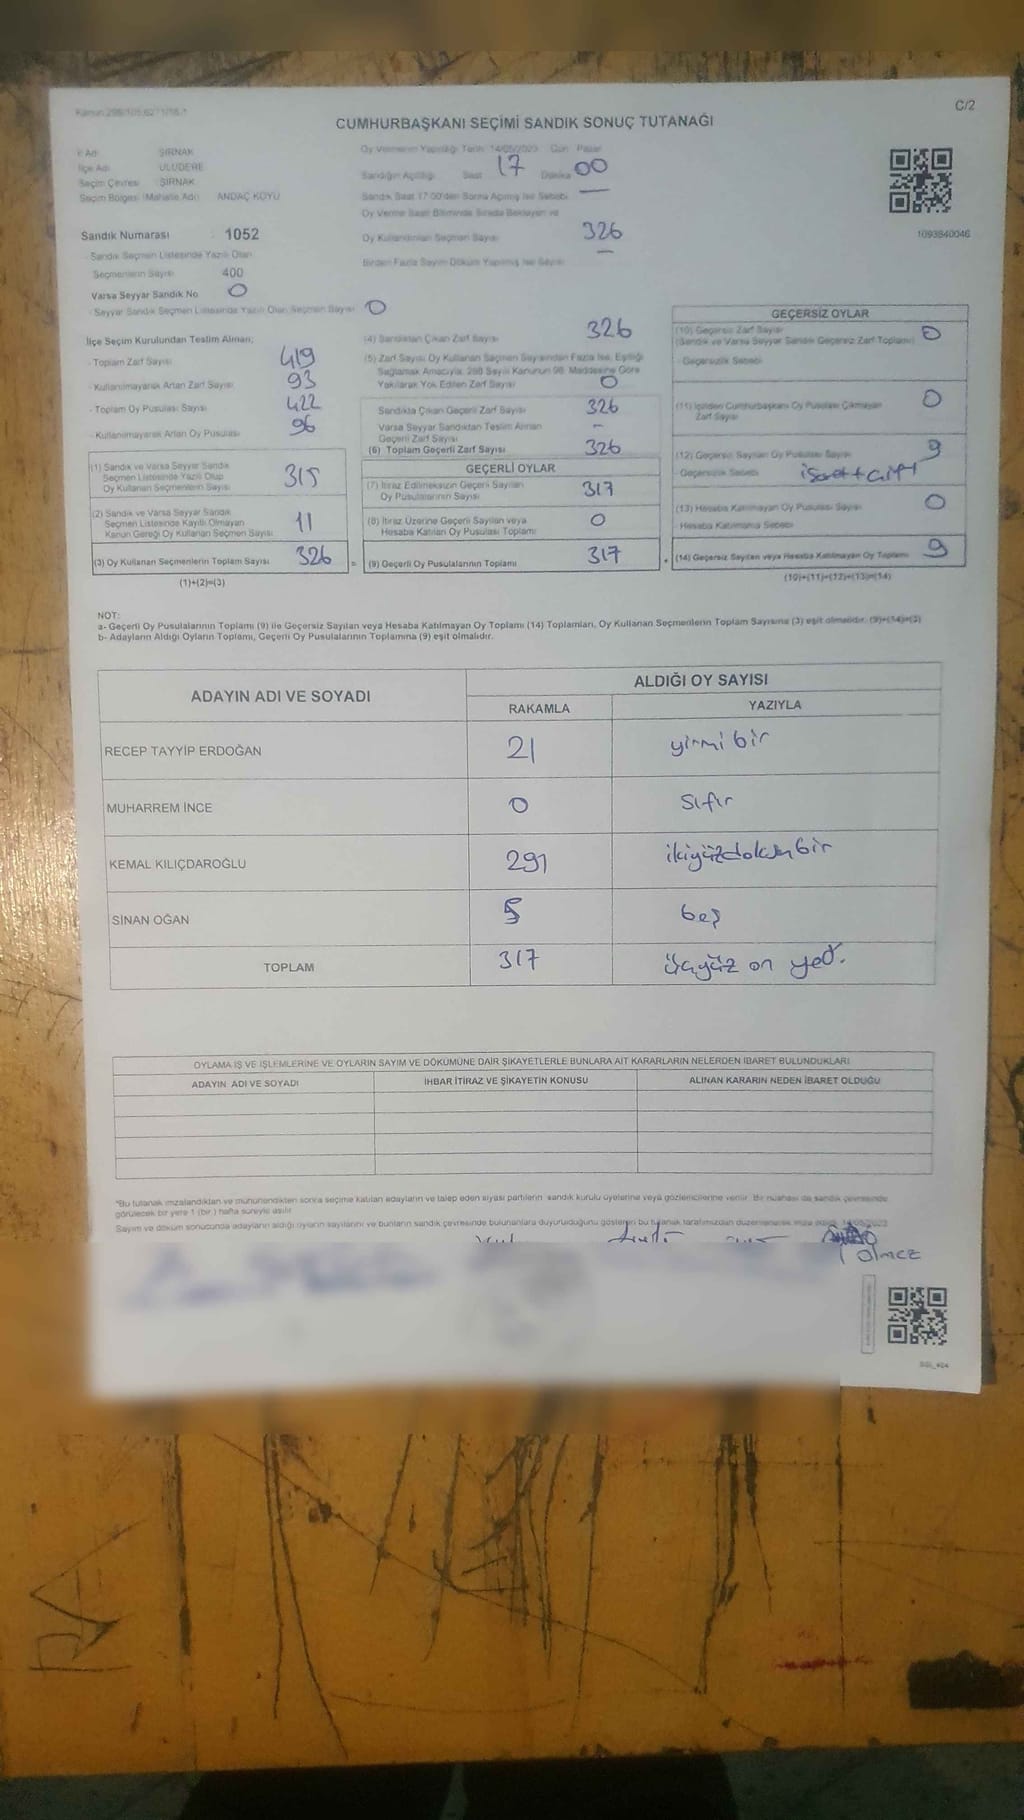 C/2
CUMHURBAŞKANI SEÇİMİ SANDIK SONUÇ TUTANAĞI
İl Adı ŞIRNAK
İlçe Adı ULUDERE
Seçim Çevresi ŞIRNAK
Seçim Bölgesi (Mahalle Adı) ANDAÇ KÖYÜ
Sandık Numarası 1052
Sandık Seçmen Listesinde Yazılı Olan
Seçmenlerin Sayısı 400
Varsa Seyyar Sandık No 0
Seyyar Sandık Seçmen Listesinde Yazılı Olan Seçmen Sayısı 0
Oy Vermenin Yapıldığı Tarih 14/05/2023 Gün Pazar
Sandığın Açıldığı Saat 17 Dakika 00
Sandık Saat 17:00'den Sonra Açılmış İse Sebebi —
Oy Verme Saati Bitiminde Sırada Bekleyen ve
Oy Kullandırılan Seçmen Sayısı 326
Birden Fazla Sayım Döküm Yapılmış İse Sayısı —
1093840046
İlçe Seçim Kurulundan Teslim Alınan;
- Toplam Zarf Sayısı 419
- Kullanılmayarak Artan Zarf Sayısı 93
- Toplam Oy Pusulası Sayısı 422
- Kullanılmayarak Artan Oy Pusulası 96
(1) Sandık ve Varsa Seyyar Sandık
Seçmen Listesinde Yazılı Olup
Oy Kullanan Seçmenlerin Sayısı 315
(2) Sandık ve Varsa Seyyar Sandık
Seçmen Listesinde Kayıtlı Olmayan
Kanun Gereği Oy Kullanan Seçmen Sayısı 11
(3) Oy Kullanan Seçmenlerin Toplam Sayısı 326
(1)+(2)=(3)
(4) Sandıktan Çıkan Zarf Sayısı 326
(5) Zarf Sayısı Oy Kullanan Seçmen Sayısından Fazla İse, Eşitliği
Sağlamak Amacıyla, 298 Sayılı Kanunun 98. Maddesine Göre
Yakılarak Yok Edilen Zarf Sayısı 0
Sandıkta Çıkan Geçerli Zarf Sayısı 326
Varsa Seyyar Sandıktan Teslim Alınan
Geçerli Zarf Sayısı -
(6) Toplam Geçerli Zarf Sayısı 326
GEÇERLİ OYLAR
(7) İtiraz Edilmeksizin Geçerli Sayılan
Oy Pusulalarının Sayısı 317
(8) İtiraz Üzerine Geçerli Sayılan veya
Hesaba Katılan Oy Pusulası Toplamı 0
= (9) Geçerli Oy Pusulalarının Toplamı 317
GEÇERSİZ OYLAR
(10) Geçersiz Zarf Sayısı
(Sandık ve Varsa Seyyar Sandık Geçersiz Zarf Toplamı) 0
- Geçersizlik Sebebi
(11) İçinden Cumhurbaşkanı Oy Pusulası Çıkmayan
Zarf Sayısı 0
(12) Geçersiz Sayılan Oy Pusulası Sayısı 9
- Geçersizlik Sebebi
(13) Hesaba Katılmayan Oy Pusulası Sayısı 0
Hesaba Katılmama Sebebi
+ (14) Geçersiz Sayılan veya Hesaba Katılmayan Oy Toplamı 9
(10)+(11)+(12)+(13)=(14)
NOT:
a- Geçerli Oy Pusulalarının Toplamı (9) ile Geçersiz Sayılan veya Hesaba Katılmayan Oy Toplamı (14) Toplamları, Oy Kullanan Seçmenlerin Toplam Sayısına (3) eşit olmalıdır. (9)+(14)=(3)
b- Adayların Aldığı Oyların Toplamı, Geçerli Oy Pusulalarının Toplamına (9) eşit olmalıdır.
ADAYIN ADI VE SOYADI ALDIĞI OY SAYISI
RAKAMLA YAZIYLA
RECEP TAYYİP ERDOĞAN 21 yirmi bir
MUHARREM İNCE 0 sıfır
KEMAL KILIÇDAROĞLU 291 ikiyüzdoksanbir
SİNAN OĞAN 5 beş
TOPLAM 317 üçyüz on yedi
OYLAMA İŞ VE İŞLEMLERİNE VE OYLARIN SAYIM VE DÖKÜMÜNE DAİR ŞİKAYETLERLE BUNLARA AİT KARARLARIN NELERDEN İBARET BULUNDUKLARI
ADAYIN ADI VE SOYADI İHBAR İTİRAZ VE ŞİKAYETİN KONUSU ALINAN KARARIN NEDEN İBARET OLDUĞU
*Bu tutanak imzalandıktan ve mühürlendikten sonra seçime katılan adayların ve talep eden siyasi partilerin sandık kurulu üyelerine veya gözlemcilerine verilir. Bir nüshası da sandık çevresinde
görülecek bir yere 1 (bir) hafta süreyle asılır.
Sayım ve döküm sonucunda adayların aldığı oyların sayılarını ve bunların sandık çevresinde bulunanlara duyurulduğunu gösteren bu tutanak tarafımızdan düzenlenerek imza edildi. 14/05/2023
ölmez